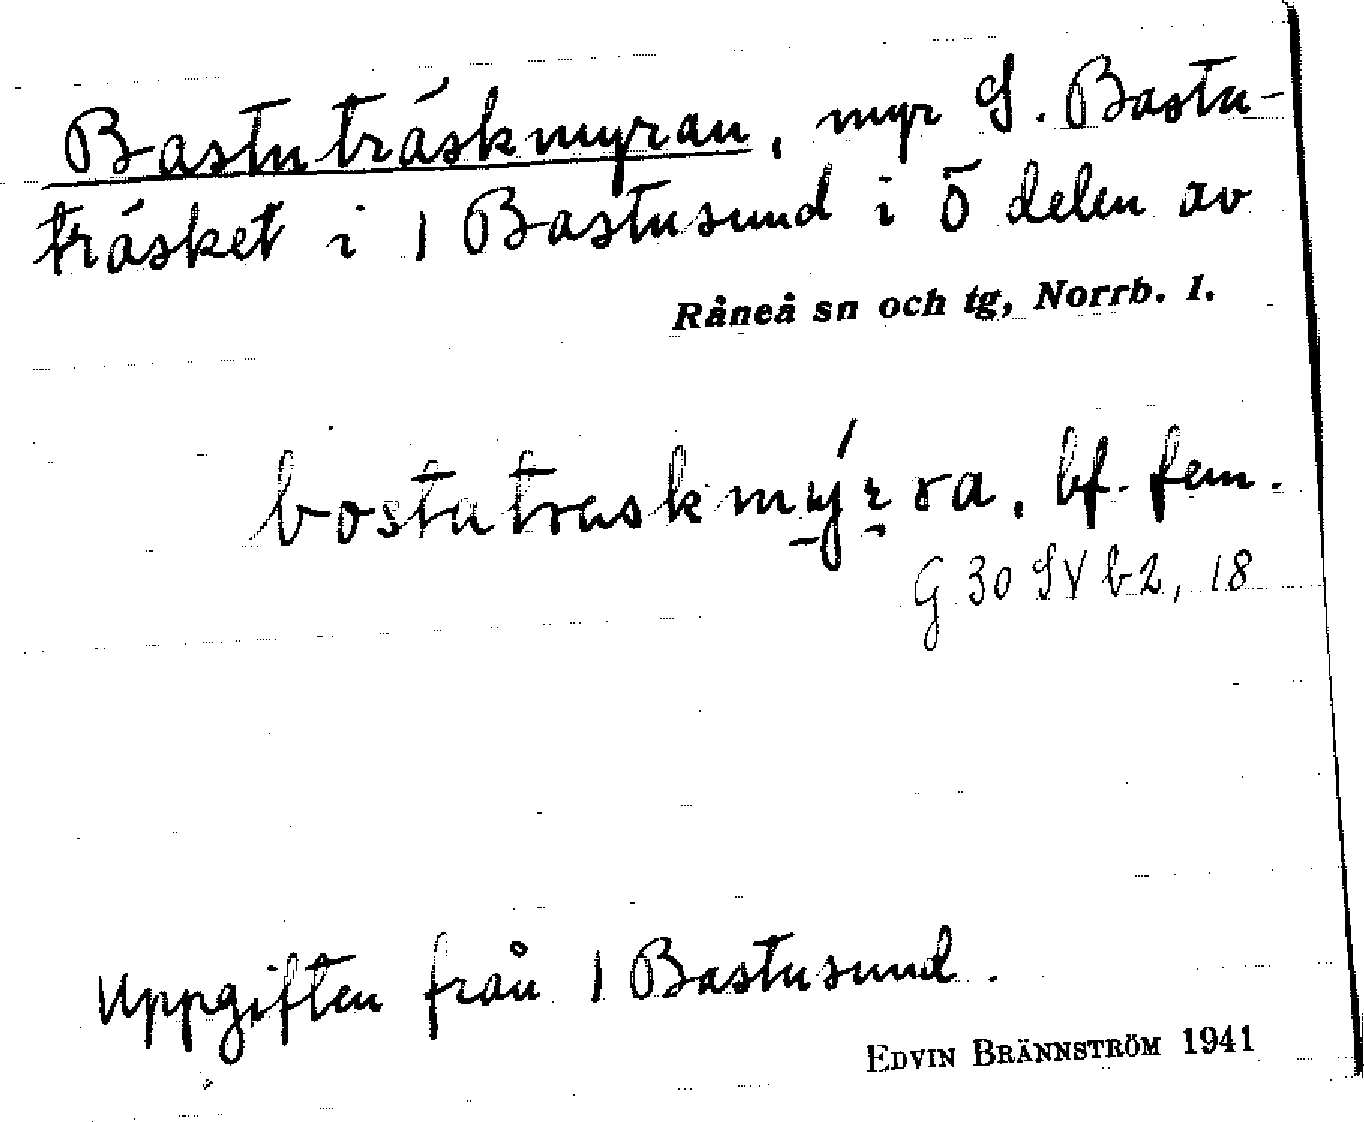 Bastuträskmyran, myr S. Bastu-
träsket i 1 Bastusund i ö delen av
Råneå sn och tg, Norrb. l.
bostutraskmýrra, bf. fem.
G 30 SV b2, 18
Uppgiften från 1 Bastusund.
EDVIN BRÄNNSTRÖM 1941